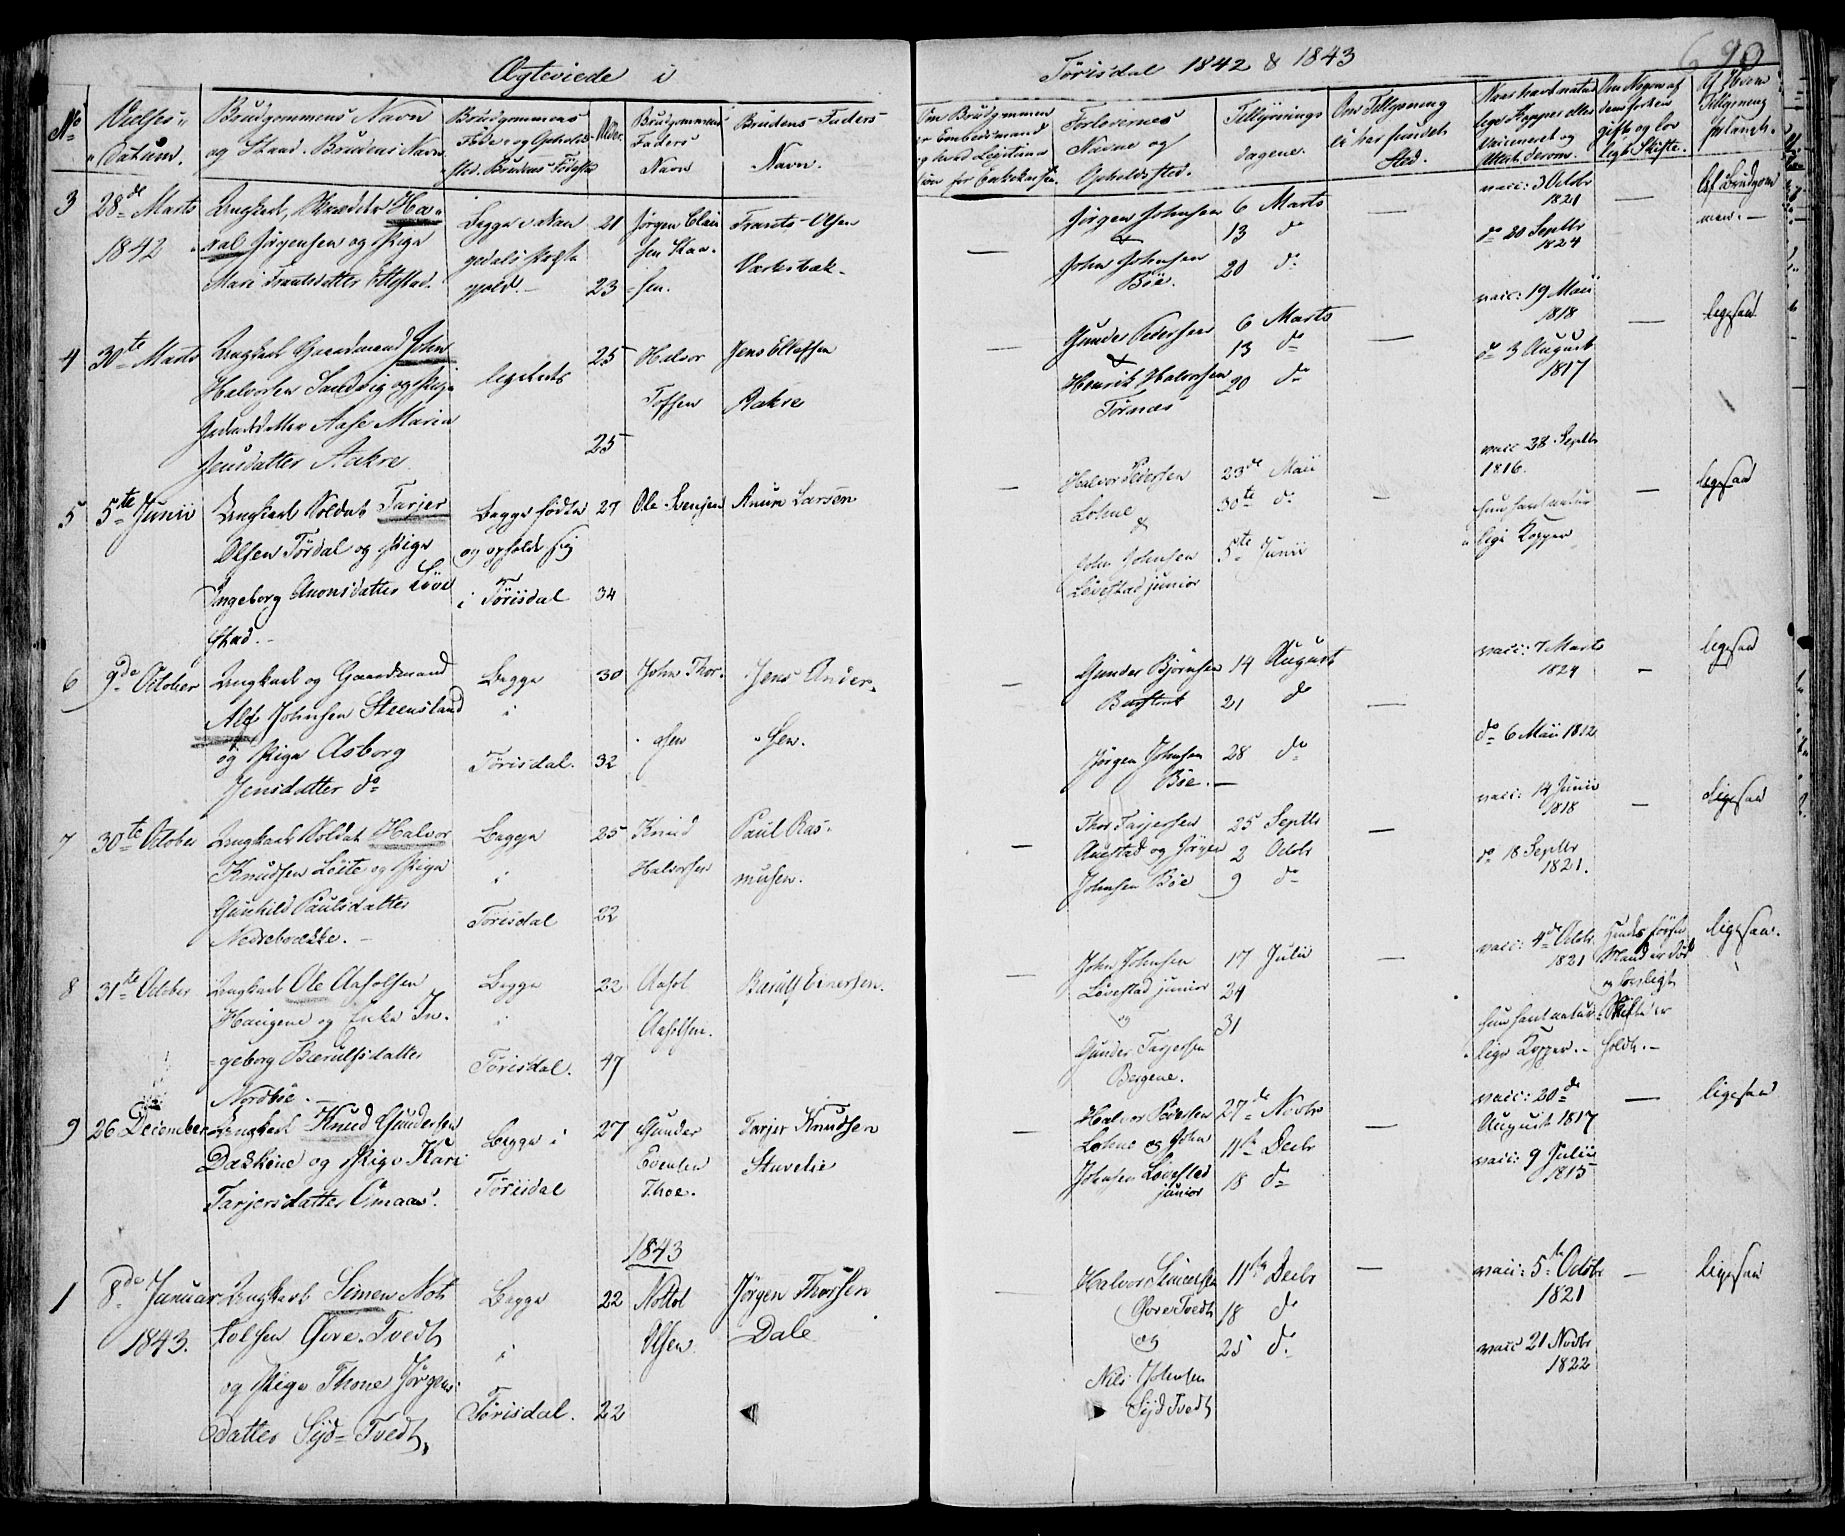 Ægteviede i Törisdal 1842 & 1843
690
No
Vielses-
Datum.
Brudgommens Navn
og Stand. Brudens Navn
Brudgommens
Føde- og Opholds-
sted. Brudens Fødested
Alder.
Brudgommens
Faders
Navn
Brudens Faders
Navn.
Om Brudgommen
er Embedsmand
og hvad Legitima-
tion for Enkekassen.
Forlovernes
Navne og
Opholdssted.
Tillysnings
dagene.
Om Tillysning
ei har fundet
Sted.
Naar havt natur-
lige Kopper eller
vaccineret og
Attest derom.
Om Nogen af
dem før have
gift og lov-
ligt Skifte.
Af Hvem
Tillysning
forlangt.
3
28de Marts
1842
Ungkarl,
Ha-
-ral Jörgensen og Pige
Mari Frantsdatter
Begge
21
23
Jörgen Clau
sen Kaa-
-sen.
Frants Olsen
Værksbæk.
Jörgen Johnsen
&
John Johnsen
Böe.
6 Marts
13 do
20 do
vacc: 3 Octbr
1821
do 20 Septbr
1824
Af Brudgom
men.
4
30te Marts
Ungkarl Gaardmand John
Halvorsen Sandvig og Pige
Aase Maria
Jensdatter Aakre
ligeledes
25
25
Halvor
Tofsen
Jens Ellefsen
Aakre
Gunder Pedersen
&
Henrik Halvorsen
Törnes
6 Marts
13 do
20 do
vacc: 19 Maii
1818
do 3 August
1817
ligesaa
5
5te Junii
Ungkarl Soldat Tarjer
Olsen Tördal og Pige
Ingeborg Anonsdatter Löve
stad.
Begge födte
og opholde sig
i Törisdal
27
34
Ole Svensen
Anun Larsen
Halvor Pedersen
Lohne
&
John Johnsen
Lövestad junior
23de Maii
30te do
5te Junii
vacc 28 Septbr
1816.
hun havt natur
lige Kopper
ligesaa
6
9de October
Ungkarl og Gaardmand
Alf Johnsen Steensland
og Pige Asborg
Jensdatter do
Begge
i
Törisdal.
30
32
John Thor-
-sen
Jens Ander-
-sen.
Gunder Björnsen
Jörgen Johnsen
Böe.
14 August
21 do
28 do
vacc: 7 Marts
1824
do 6 Maii 1812
ligesaa
7
30te October
Ungkarl Soldat Halvor
Knudsen Löite og Pige
Gunhild Paulsdatter
Nedrebække.
Begge
i
Törisdal
25
22
Knud
Halvorsen
Paul Ras-
musen.
Thor Tarjersen
Aasestad og Jörgen
Johnsen Böe
25 Septbr
2 Octbr
9 do
vacc: 14 Junii
1818
do 18 Septbr
1821.
Ligesaa
8
31te October
Ungkarl Ole Aasolsen
Haugene og Enke In-
-geborg Bærulfsdatter
Nordböe.
Begge
i
Törisdal.
22
47
Aasol
Aasolsen.
Bærulf Enersen.
John Johnsen
Lövestad junior
og
Gunder Tarjersen
Bergene.
17 Julii
24
31
vacc: 4de Octbr
1821
hun havt natur-
lige Kopper.
Hendes første
Mand er død
og lovligt
Skifte er
holdt.
ligesaa.
9
26 December
Ungkarl Knud Gundersen
Daskene og Pige Kari
Tarjersdatter Omaas.
Begge i
Törisdal
27
Gunder
Evensen
Thoe.
Tarjer Knudsen
Stuvelie
Halvor Pedersen
Lohne og John
Johnsen Lövestad
junior
27de Novbr
11te Decbr
18 do
vacc: 20de
August 1817
vacc: 9 Julii
1815
ligesaa
1843
1
8de Januar
1843.
Ungkarl Simen Not-
tolsen Övre Tvedt
og Pige Thone Jörgens-
datter Syd-Tvedt,
Begge
i
Törisdal.
22
22
Nottol
Olsen.
Jörgen Thorsen
Dale
Halvor Simensen
Övre Tvedt
og
Nils Johnsen
Syd Tvedt
11te Decbr
18 do
25 do
vacc: 5te Octbr
1821
vacc 21 Novbr
1822
ligesaa